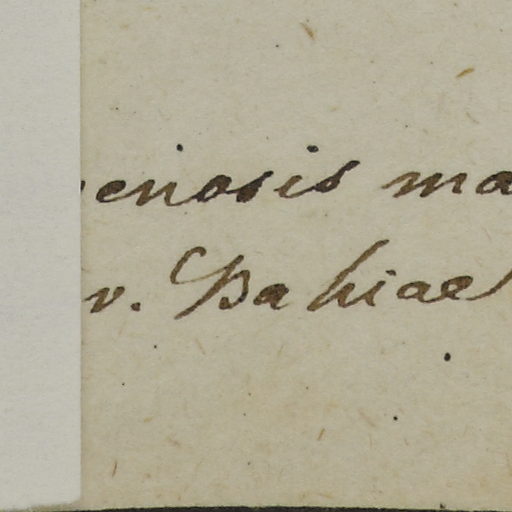 enosis ma
v. Bahiae